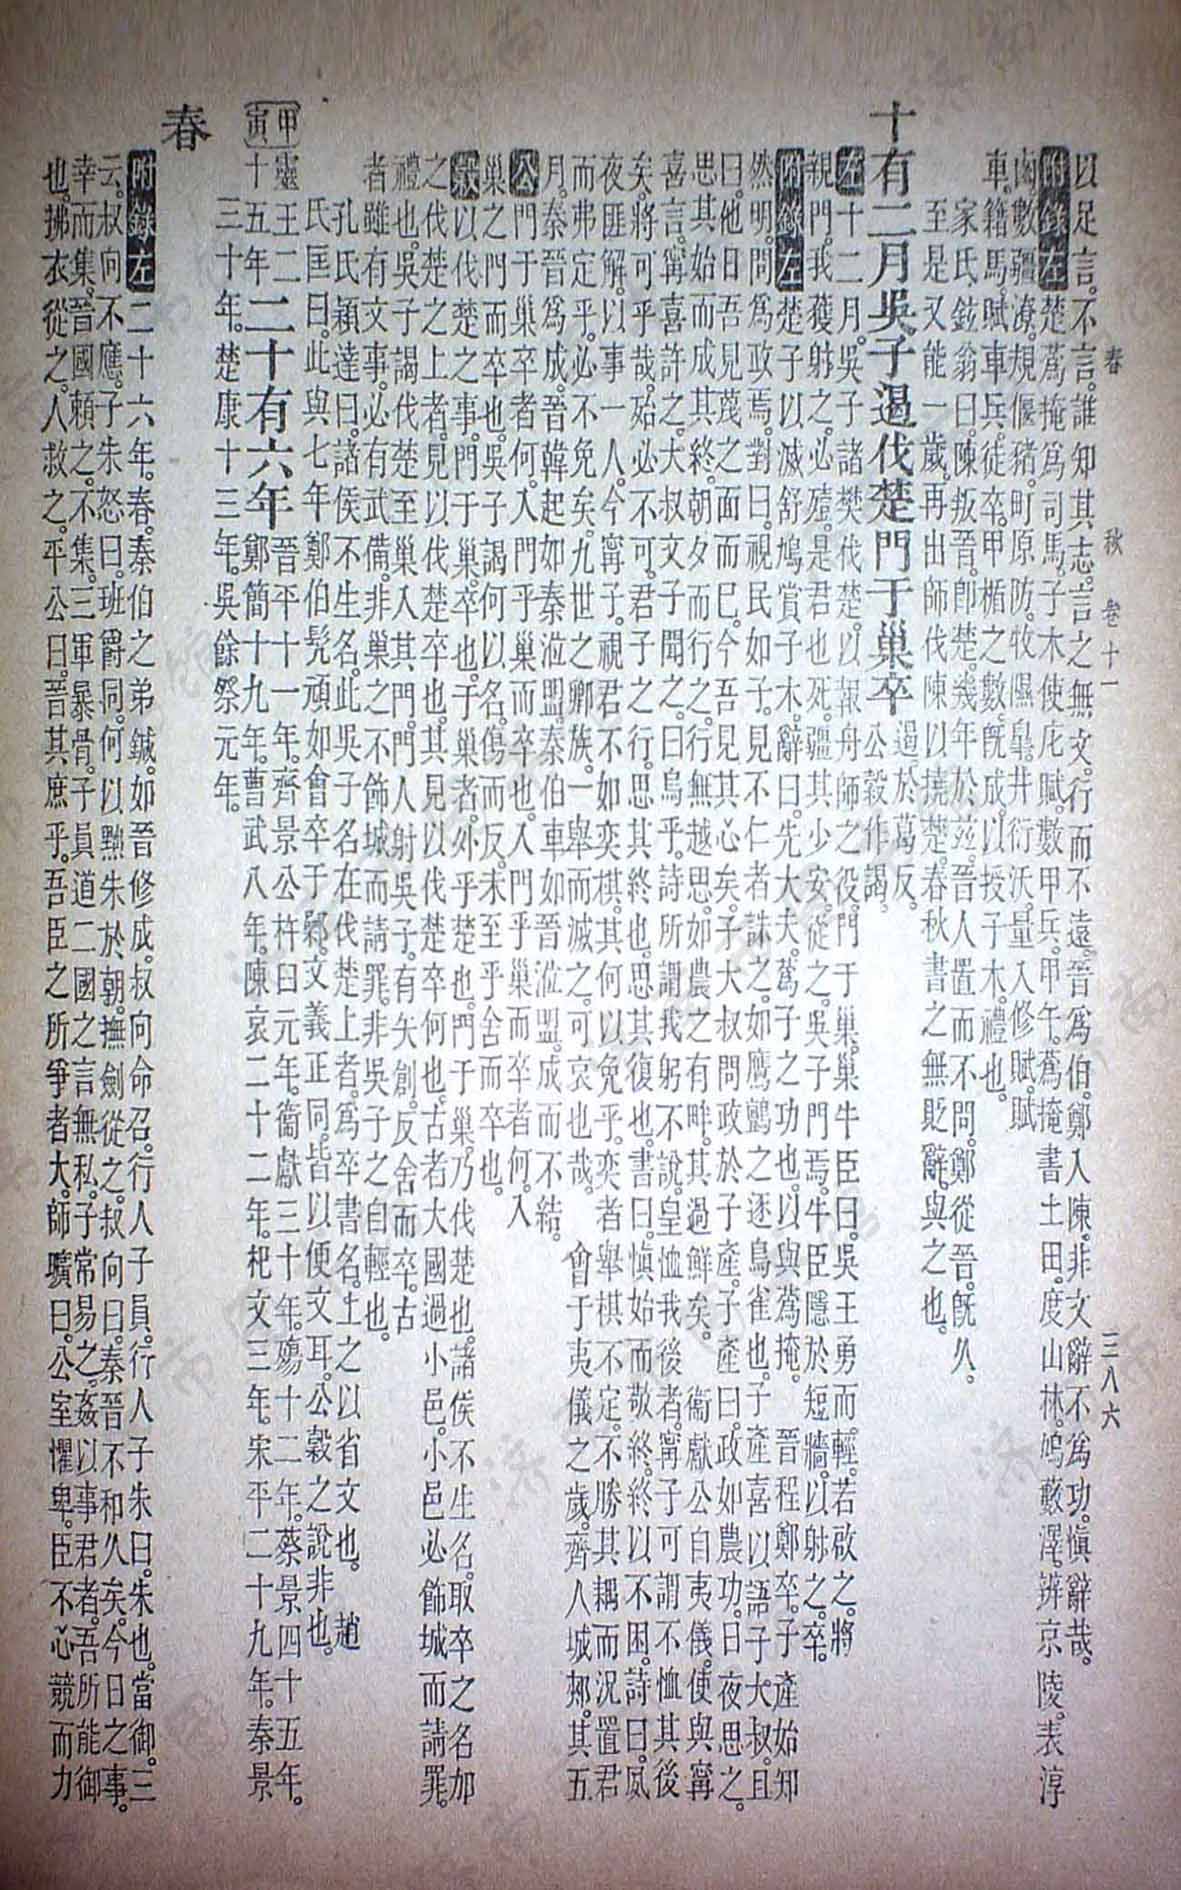 春 秋 卷十一 三八六
以足言。不言。誰知其志。言之無文。行而不遠。晉爲伯。鄭入陳。非文辭不爲功。愼辭哉。
附錄左楚蒍掩爲司馬。子木使庀賦。數甲兵。甲午。蒍掩書土田。度山林。鳩藪澤。辨京陵。表淳
鹵。數疆潦。規偃豬。町原防。牧隰臯。井衍沃。量入修賦。賦
車。籍馬。賦車兵。徒卒。甲楯之數。旣成。以授子木。禮也。
家氏鉉翁曰。陳叛晉。卽楚。幾年於茲。晉人置而不問。鄭從晉。旣久。
至是又能一歲。再出師伐陳以撓楚。春秋書之無貶辭。與之也。
十有二月吳子遏伐楚門于巢卒 遏於葛反。公穀作謁。
左十二月。吳子諸樊伐楚。以報舟師之役。門于巢。巢牛臣曰。吳王勇而輕。若啟之。將
親門。我獲射之。必殪。是君也死。疆其少安。從之。吳子門焉。牛臣隱於短牆以射之。卒。
附錄左楚子以滅舒鳩賞子木。辭曰。先大夫。蒍子之功也。以與蒍掩。 晉程鄭卒。子產始知
然明。問爲政焉。對曰。視民如子。見不仁者誅之。如鷹鸇之逐鳥雀也。子產喜以語子大叔。且
曰。他日吾見蔑之面而已。今吾見其心矣。子大叔問政於子產。子產曰。政如農功。日夜思之。
思其始而成其終。朝夕而行之。行無越思。如農之有畔。其過鮮矣。 衞獻公自夷儀。使與寗
喜言。寗喜許之。大叔文子聞之。曰。烏乎。詩所謂我躬不說。皇恤我後者。寗子可謂不恤其後
矣。將可乎哉。殆必不可。君子之行。思其終也。思其復也。書曰。愼始而敬終。終以不困。詩曰。夙
夜匪解。以事一人。今寗子。視君不如奕棋。其何以免乎。奕者舉棋不定。不勝其耦。而況置君
而弗定乎。必不免矣。九世之卿族。一舉而滅之。可哀也哉。 會于夷儀之歲。齊人城郟。其五
月。秦晉爲成。晉韓起如秦涖盟。秦伯車如晉涖盟。成而不結。
公門于巢卒者何。入門乎巢而卒也。入門乎巢而卒者何。入
巢之門而卒也。吳子謁何以名。傷而反。未至乎舍而卒也。
穀以伐楚之事。門于巢。卒也。于巢者。外乎楚也。門于巢。乃伐楚也。諸侯不生名。取卒之名加
之伐楚之上者。見以伐楚卒也。其見以伐楚卒何也。古者大國過小邑。小邑必飾城而請罪。
禮也。吳子謁伐楚至巢入其門。門人射吳子。有矢創。反舍而卒。古
者雖有文事。必有武備。非巢之不飾城而請罪。非吳子之自輕也。
孔氏穎達曰。諸侯不生名。此吳子名在伐楚上者。爲卒書名。上之以省文也。 趙
氏匡曰。此與七年鄭伯髠頑如會卒于鄵。文義正同。皆以便文耳。公穀之說非也。
甲寅 靈王二十五年 二十有六年 晉平十一年。齊景公杵臼元年。衞獻三十年。殤十二年。蔡景四十五年。
鄭簡十九年。曹武八年。陳哀二十二年。杞文三年。宋平二十九年。秦景
三十年。楚康十三年。吳餘祭元年。
春
附錄左二十六年。春。秦伯之弟鍼。如晉修成。叔向命召。行人子員。行人子朱曰。朱也。當御。三
云。叔向不應。子朱怒曰。班爵同。何以黜朱於朝。撫劍從之。叔向曰。秦晉不和久矣。今日之事。
幸而集。晉國賴之。不集。三軍暴骨。子員道二國之言無私。子常易之。姦以事君者。吾所能御
也。拂衣從之。人救之。平公曰。晉其庶乎。吾臣之所爭者大。師曠曰。公室懼卑。臣不心競而力